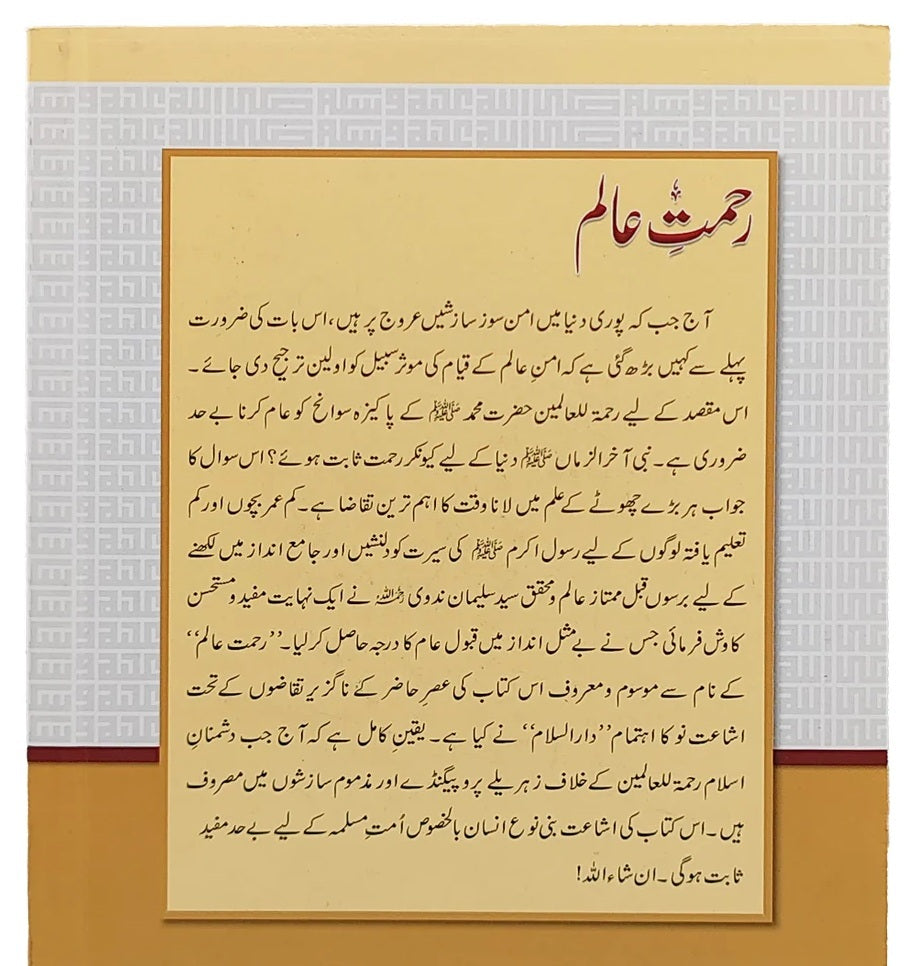 رحمتِ عالم ﷺ
آج جب کہ پوری دنیا میں امن سوز سازشیں عروج پر ہیں، اس بات کی ضرورت
پہلے سے کہیں بڑھ گئی ہے کہ امنِ عالم کے قیام کی موثر سبیل کو اولین ترجیح دی جائے ۔
اس مقصد کے لیے رحمۃ للعالمین حضرت محمد ﷺ کے پاکیزہ سوانح کو عام کرنا بے حد
ضروری ہے ۔ نبی آخر الزماں ﷺ دنیا کے لیے کیونکر رحمت ثابت ہوئے؟ اس سوال کا
جواب ہر بڑے چھوٹے کے علم میں لانا وقت کا اہم ترین تقاضا ہے ۔ کم عمر بچوں اور کم
تعلیم یافتہ لوگوں کے لیے رسول اکرم ﷺ کی سیرت کو دلنشیں اور جامع انداز میں لکھنے
کے لیے برسوں قبل ممتاز عالم و محقق سید سلیمان ندوی رحمہ اللہ نے ایک نہایت مفید و مستحسن
کاوش فرمائی جس نے بے مثل انداز میں قبول عام کا درجہ حاصل کر لیا ۔ ’’رحمت عالم‘‘
کے نام سے موسوم و معروف اس کتاب کی عصرِ حاضر کے ناگزیر تقاضوں کے تحت
اشاعت نو کا اہتمام ’’دارالسلام‘‘ نے کیا ہے ۔ یقینِ کامل ہے کہ آج جب دشمنانِ
اسلام رحمۃ للعالمین کے خلاف زہریلے پروپیگنڈے اور مذموم سازشوں میں مصروف
ہیں ۔ اس کتاب کی اشاعت بنی نوع انسان بالخصوص اُمتِ مسلمہ کے لیے بے حد مفید
ثابت ہوگی ۔ ان شاء اللہ!